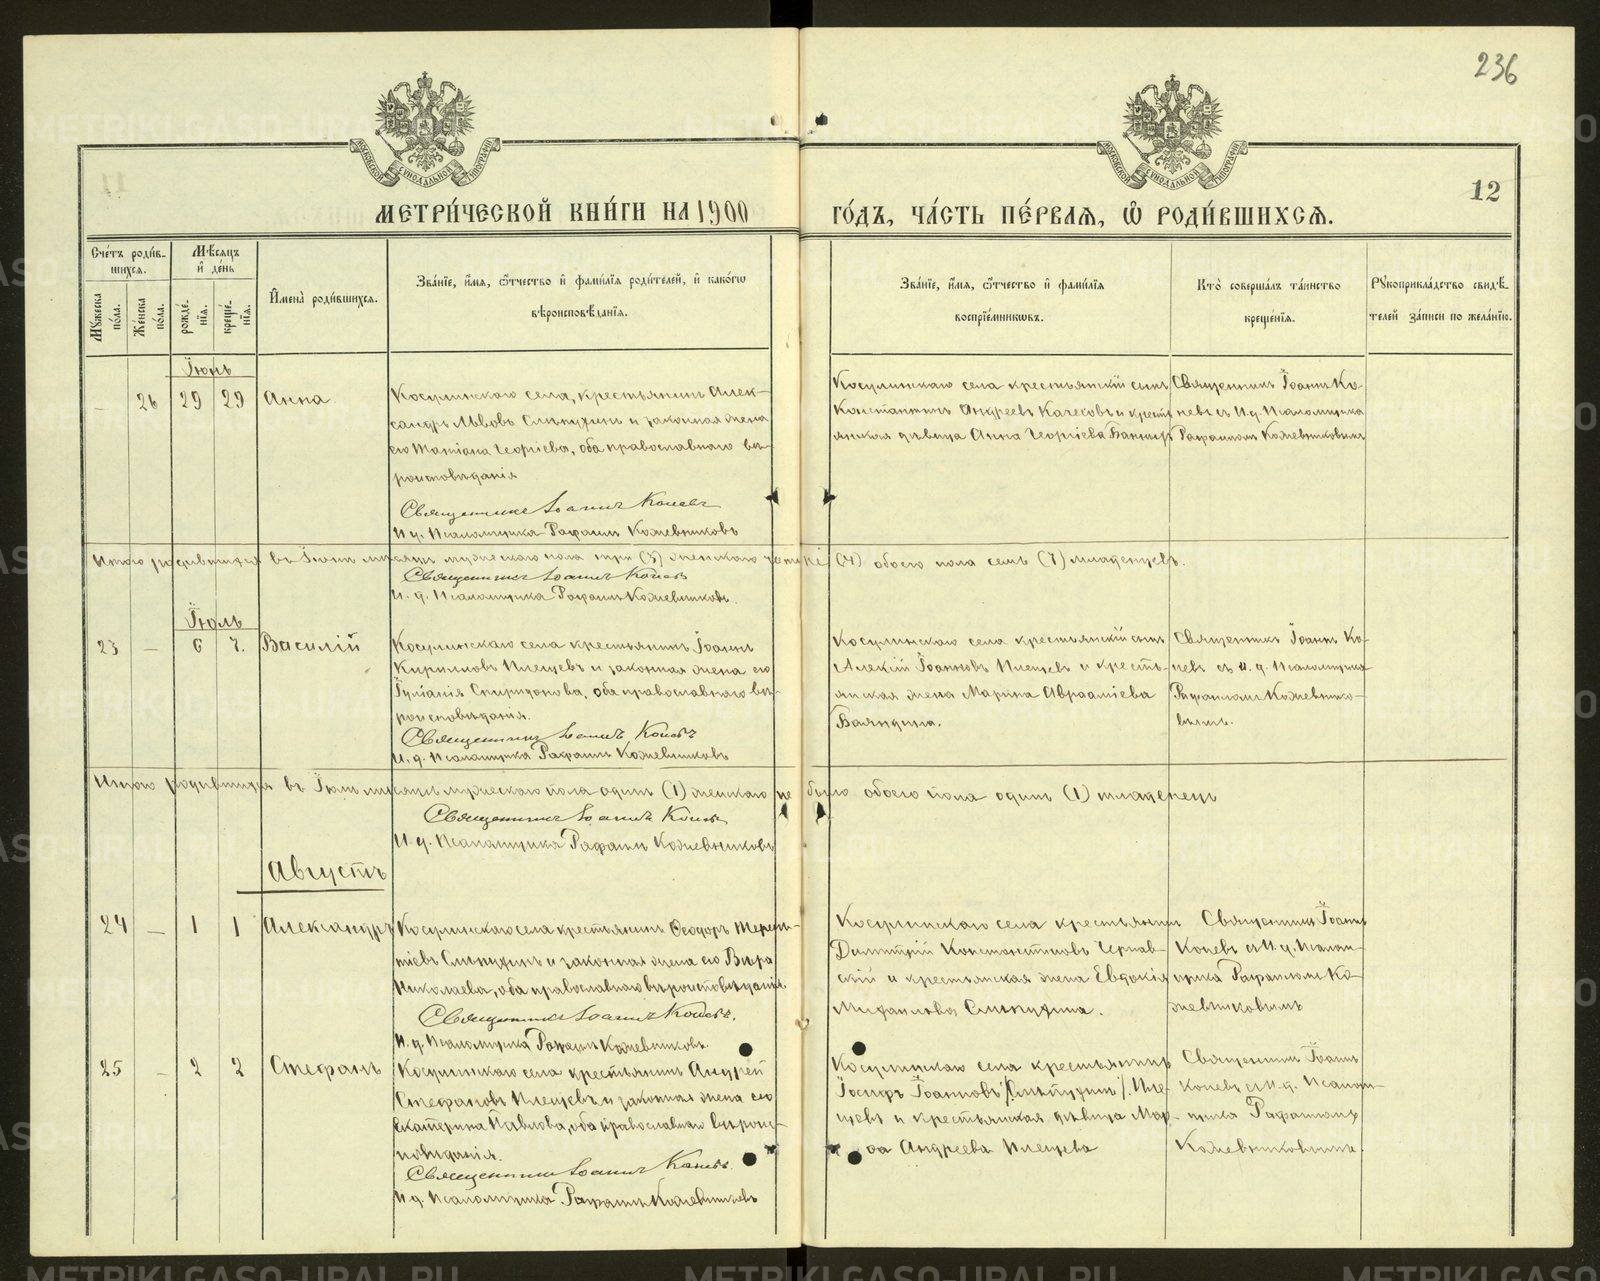 236
12
МЕТРИ́ЧЕСКОЙ КНИ́ГИ НА 1900 ГО́ДЪ, ЧА́СТЬ ПЕ́РВАЯ, Ѡ҆ РОДИ́ВШИХСЯ.
Сче́тъ роди́в-
шихся.
Мꙋжеска по́ла.
Же́нска по́ла.
Мѣ́сяцъ
и҆ де́нь
рожде́-
нїѧ.
креще́-
нїѧ.
И҆мена̀ роди́вшихся.
Зва́нїе, и҆́мѧ, ѻ҆́тчество и҆ фами́лїѧ роди́телей, и҆ како́гѡ
вѣроисповѣ́данїѧ.
Зва́нїе, и҆́мѧ, ѻ҆́тчество и҆ фами́лїѧ
воспрїе́мниковъ.
Кто̀ соверша́лъ та́инство
креще́нїѧ.
Рꙋкоприкла́дство свидѣ́-
телей за́писи по жела́нїю.
Іюнь
– 26 29 29 Анна
Косулинскаго села, крестьянинъ Алек-
сандръ Львовъ Слѣпухинъ и законная жена
его Татіана Георгіева, оба православнаго вѣ-
роисповѣданія
Священникъ Іоаннъ Коневъ
И. д. Псаломщика Рафаилъ Кожевниковъ
Косулинскаго села крестьянскій сынъ
Константинъ Андреевъ Качесовъ и кресть
янская дѣвица Анна Георгіева
Священникъ Іоаннъ Ко-
невъ съ И. д. Псаломщика
Рафаиломъ Кожевниковымъ
Итого родившихся въ Іюнѣ мѣсяцѣ мужескаго пола три (3) женскаго четыре (4) обоего пола семь (7) младенцевъ.
Священникъ Іоаннъ Коневъ
И. д. Псаломщика Рафаилъ Кожевниковъ.
Іюль
23 – 6 7. Василій
Косулинскаго села крестьянинъ Іоаннъ
Кириловъ Плещевъ и законная жена его
Іуліанія Спиридонова, оба православнаго вѣ-
роисповѣданія.
Священникъ Іоаннъ Коневъ
И. д. Псаломщика Рафаилъ Кожевниковъ
Косулинскаго села крестьянскій сынъ
Алексій Іоанновъ Плещевъ и кресть-
янская жена Марина Авраамiева
Баяндина.
Священникъ Іоаннъ Ко-
невъ съ и. д. Псаломщика
Рафаиломъ Кожевнико-
вымъ.
Итого родившихся въ Іюлѣ мѣсяцѣ мужескаго пола одинъ (1) женскаго не было обоего пола одинъ (1) младенецъ
Священникъ Іоаннъ Коневъ
И. д. Псаломщика Рафаилъ Кожевниковъ
Августъ
24 – 1 1 Александръ
Косулинскаго села крестьянинъ Ѳеодоръ Терен-
тіевъ Слѣпухинъ и законная жена его Вѣра
Николаева, оба православнаго вѣроисповѣданія
Священникъ Іоаннъ Коневъ.
И. д. Псаломщика Рафаилъ Кожевниковъ.
Косулинскаго села крестьянинъ
Димитрій Константиновъ Чернав-
скій и крестьянская жена Евдокія
Михаилова Слѣпухина.
Священникъ Іоаннъ
Коневъ съ И. д. Псалом-
щика Рафаиломъ Ко-
жевниковымъ
25 – 2 2 Стефанъ
Косулинскаго села крестьянинъ Андрей
Стефановъ Плещевъ и законная жена его
Екатерина Павлова, оба православнаго вѣроис-
повѣданія.
Священникъ Іоаннъ Коневъ.
И. д. Псаломщика Рафаилъ Кожевниковъ
Косулинскаго села крестьянинъ
Іосифъ Іоанновъ /Слѣпухинъ/. Пле-
щевъ и крестьянская дѣвица Мар-
ѳа Андреева Плещева
Священникъ Іоаннъ
Коневъ съ И. д. Псалом-
щика Рафаиломъ
Кожевниковымъ.
METRIKI.GASO-URAL.RU